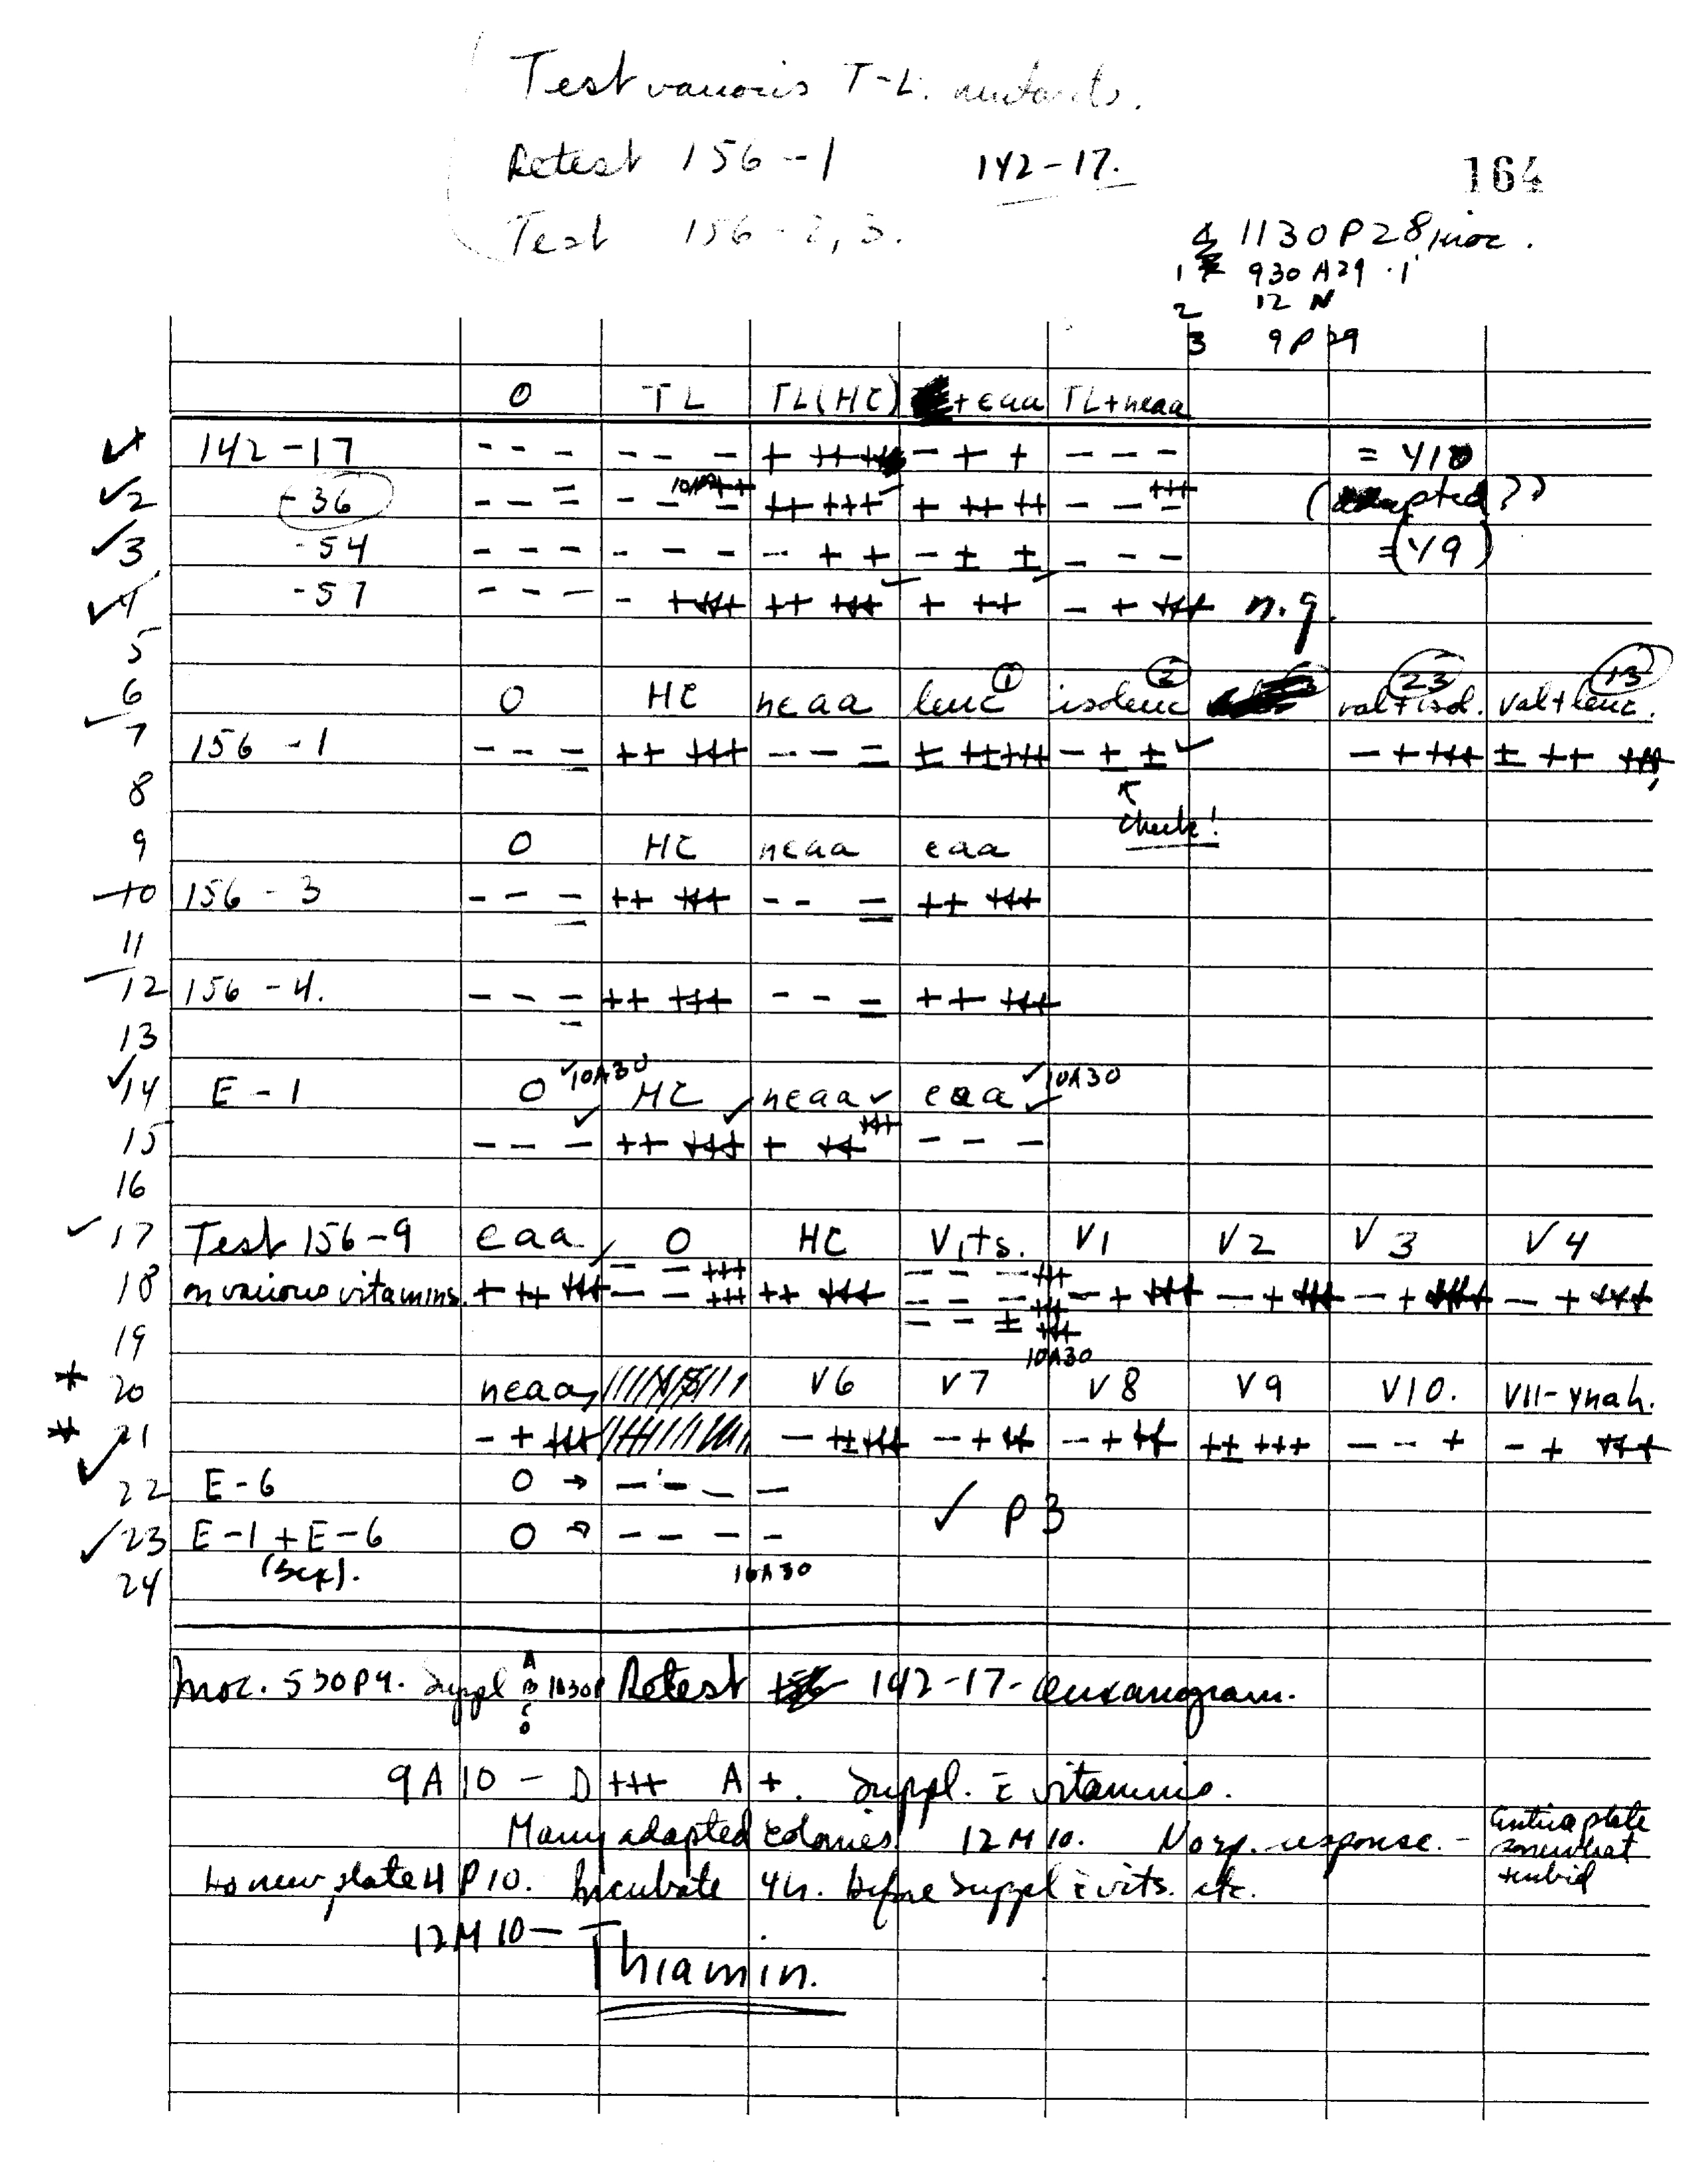 Test various T-L. mutants.
Retest 156-1 142-17.
164
Test 156-2, 3.
4 1130P28 inoc.
1 930A29 .1
2 12 N
3 9P29
0 TL TL(HC) +eaa TL+neaa
142-17 - - - - - - + ++ +++ - + + - - - = Y10
2 -36 - - = - - - 10A30 +++ ++ +++ + ++ ++ - - - +++ (adapted??)
3 -54 - - - - - - - + + - ± ± - - - =(Y9)
4 -57 - - - - +++ ++ +++ + ++ - + +++ n.g.
5
6 0 HC neaa leuc ① isoleuc ② 3 val+isol. 23 val+leuc. 13
7 156-1 - - = ++ +++ - - = ± ++ +++ - ± ± - + +++ ± ++ +++
8 check!
9 0 HC neaa eaa
10 156-3 - - = ++ +++ - - = ++ +++
11
12 156-4. - - = ++ +++ - - = ++ +++
13
14 E-1 0 10A30 HC neaa eaa 10A30
15 - - - ++ +++ + ++ +++ - - -
16
17 Test 156-9 eaa 0 HC Vits. V1 V2 V3 V4
18 on various vitamins. + ++ +++ - - +++ - - +++ ++ +++ - - - +++ - - - +++ - - ± +++ - + +++ - + +++ - + +++ - + +++
19 10A30
20 neaa V6 V7 V8 V9 V10. V11-ynah.
21 - + +++ - ++ +++ - + ++ - + ++ ++ +++ - - + - + +++
22 E-6 0 → - - - -
✓ P3
23 E-1 + E-6 0 → - - - -
24 (Sex). 10A30
Inoc. 530P9. Suppl A B C D 1030P Retest 142-17- Auxanogram.
9A10 - D +++ A +. Suppl. c̄ vitamins.
Many adapted colonies 12M10. No sp. response. - Entire plate somewhat turbid
to new plate 4P10. Incubate 4h. before suppl c̄ vits. etc.
12M10- Thiamin.